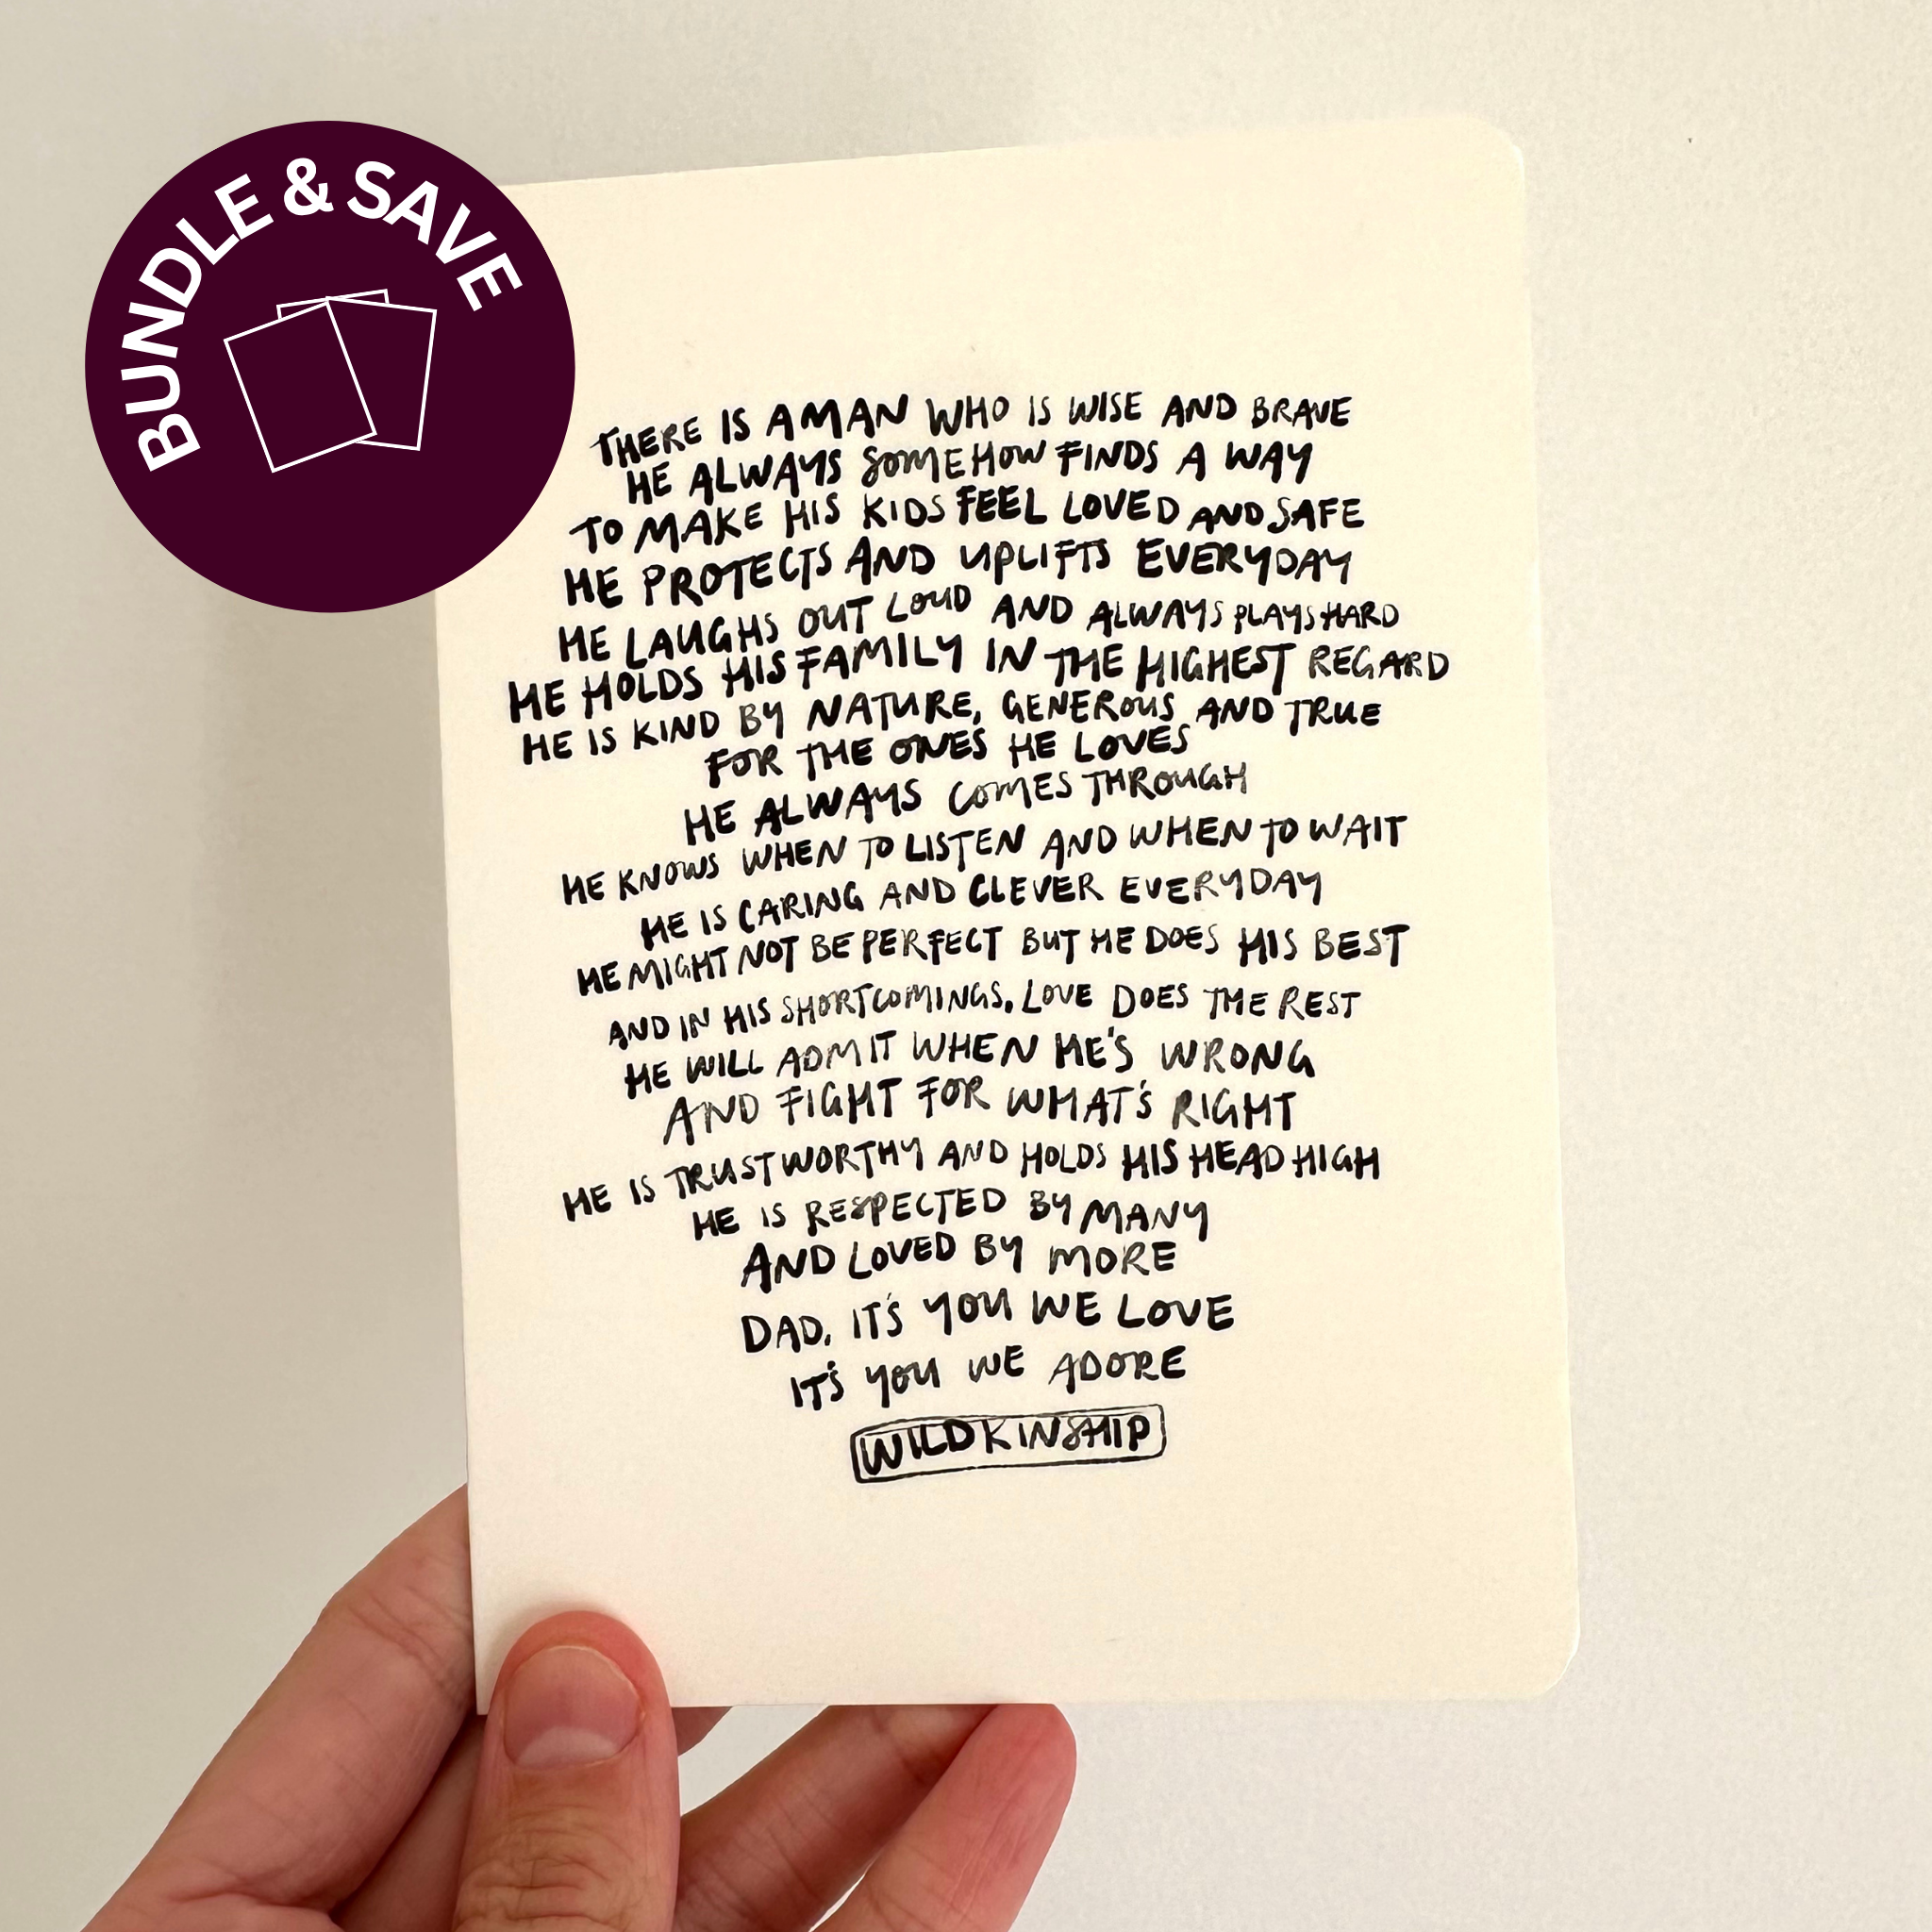 BUNDLE & SAVE
THERE IS A MAN WHO IS WISE AND BRAVE
HE ALWAYS SOMEHOW FINDS A WAY
TO MAKE HIS KIDS FEEL LOVED AND SAFE
HE PROTECTS AND UPLIFTS EVERYDAY
HE LAUGHS OUT LOUD AND ALWAYS PLAYS HARD
HE HOLDS HIS FAMILY IN THE HIGHEST REGARD
HE IS KIND BY NATURE, GENEROUS AND TRUE
FOR THE ONES HE LOVES
HE ALWAYS COMES THROUGH
HE KNOWS WHEN TO LISTEN AND WHEN TO WAIT
HE IS CARING AND CLEVER EVERYDAY
HE MIGHT NOT BE PERFECT BUT HE DOES HIS BEST
AND IN HIS SHORTCOMINGS, LOVE DOES THE REST
HE WILL ADMIT WHEN HE'S WRONG
AND FIGHT FOR WHAT'S RIGHT
HE IS TRUSTWORTHY AND HOLDS HIS HEAD HIGH
HE IS RESPECTED BY MANY
AND LOVED BY MORE
DAD, IT'S YOU WE LOVE
IT'S YOU WE ADORE
WILDKINSHIP